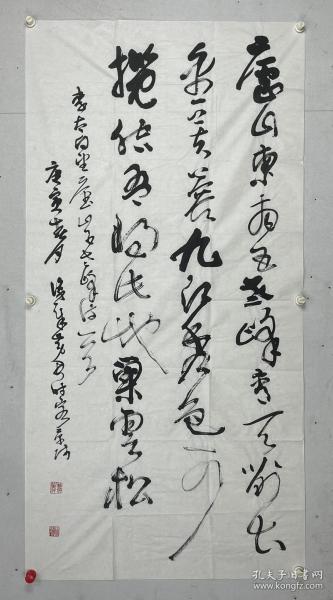 廬山東南五老峰青天削出
金芙蓉九江秀色可
攬结吾將此地巢雲松
李太白望廬山五老峰诗一首
庚寅春月
孔夫子旧书网